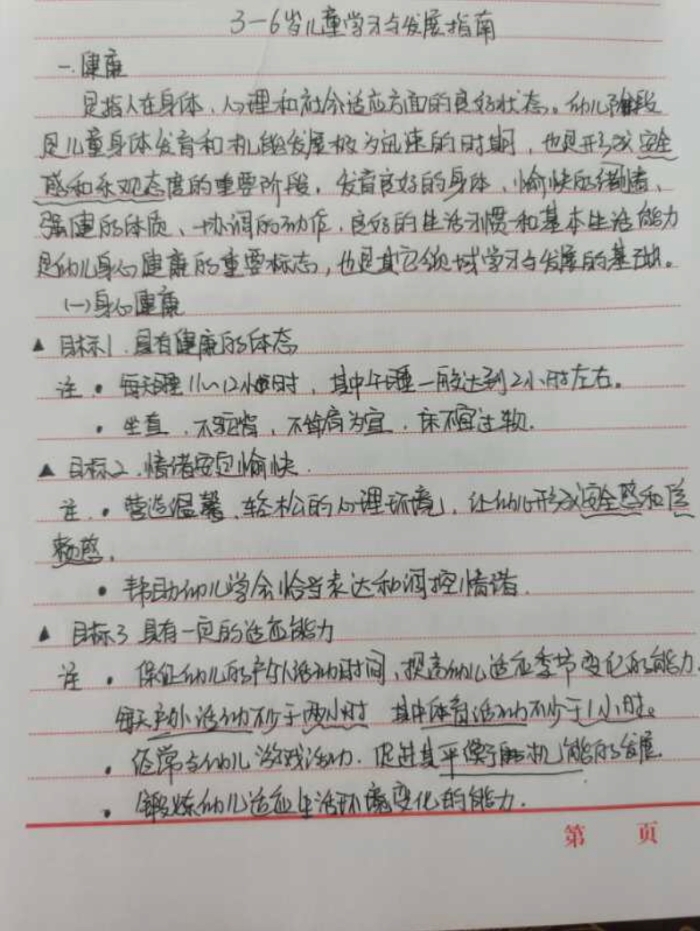 3-6岁儿童学习与发展指南
一.健康
是指人在身体、心理和社会适应方面的良好状态。幼儿阶段
是儿童身体发育和机能发展极为迅速的时期,也是形成安全
感和乐观态度的重要阶段。发育良好的身体、愉快的情绪、
强健的体质、协调的动作、良好的生活习惯和基本生活能力
是幼儿身心健康的重要标志,也是其它领域学习与发展的基础。
(一)身心健康
▲ 目标1.具有健康的体态
注 · 每天睡11~12小时,其中午睡一般达到2小时左右。
· 坐直、不驼背、不耸肩为宜、床不宜过软.
▲ 目标2.情绪安定愉快.
注 · 营造温馨、轻松的心理环境,让幼儿形成安全感和信
赖感.
· 帮助幼儿学会恰当表达和调控情绪.
▲ 目标3 具有一定的适应能力
注 · 保证幼儿的户外活动时间,提高幼儿适应季节变化的能力.
每天户外活动不少于两小时 其中体育活动不少于1小时。
· 经常与幼儿游戏活动.促进其平衡机能的发展.
· 锻炼幼儿适应生活环境变化的能力.
第 页